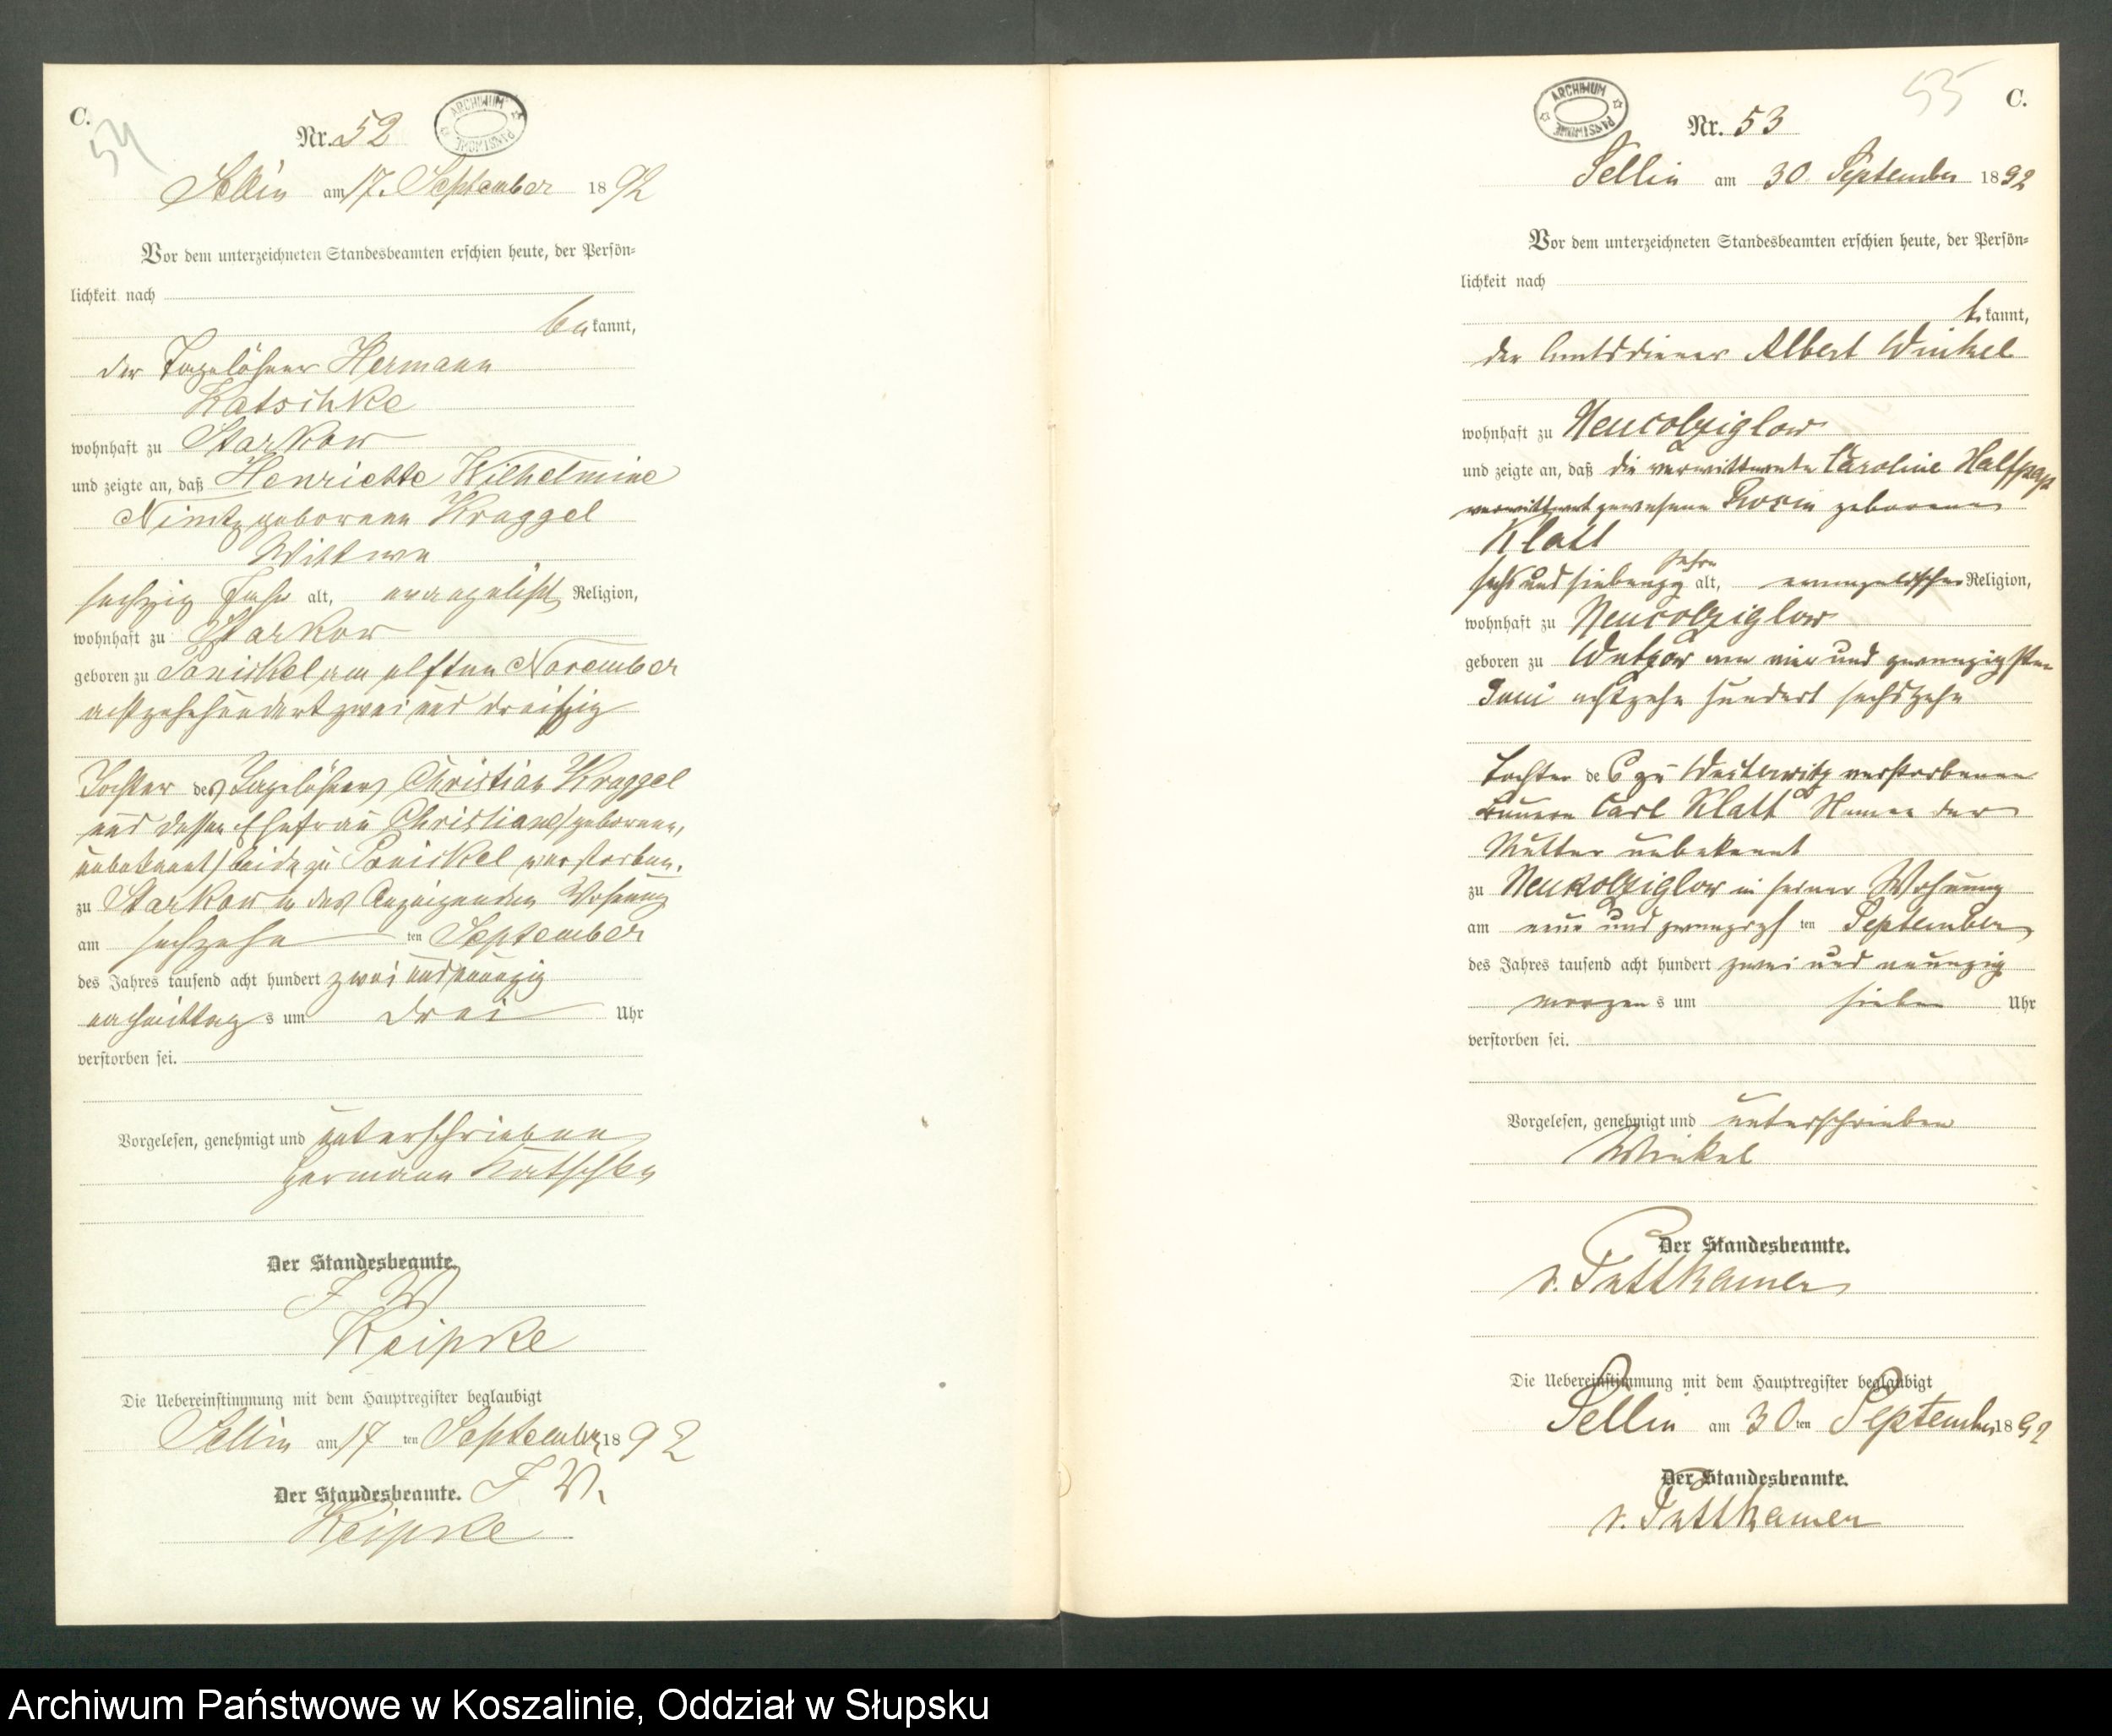 C.
54
Nr. 52
ARCHIWUM PAŃSTWOWE
Sellin am 17. September 1892
Vor dem unterzeichneten Standesbeamten erschien heute, der Persön-
lichkeit nach
bekannt,
der Tagelöhner Hermann
Katschke
wohnhaft zu Starkow
und zeigte an, daß Henriette Wilhelmine
Nimtz geborene Kraggel
Wittwe
sechzig Jahr alt, evangelisch Religion,
wohnhaft zu Starkow
geboren zu Ponickel, am elften November
achtzehnhundert zwei und dreißig
Tochter des Tagelöhners Christian Kraggel
und dessen Ehefrau Christiane (geborene,
unbekannt) beide zu Ponickel verstorben.
zu Starkow in des Anzeigenden Wohnung
am sechzehn ten September
des Jahres tausend acht hundert zwei und neunzig
nachmittag s um drei Uhr
verstorben sei.
Vorgelesen, genehmigt und unterschrieben
Hermann Katschke
Der Standesbeamte.
J W
Reipke
Die Uebereinstimmung mit dem Hauptregister beglaubigt
Sellin am 17 ten September 1892
Der Standesbeamte. J W.
Reipke
55
C.
ARCHIWUM PAŃSTWOWE
Nr. 53
Sellin am 30. September 1892
Vor dem unterzeichneten Standesbeamten erschien heute, der Persön-
lichkeit nach
b. kannt,
der Amtsdiener Albert Winkel
wohnhaft zu Neucolziglow
und zeigte an, daß die verwittwete Caroline Halfpap
verwittwet gewesene geborene
Klatt
sechs und siebenzig Jahre alt, evangelischer Religion,
wohnhaft zu Neucolziglow
geboren zu am vier und zwanzigsten
Juni achtzehn hundert sechszehn
Tochter des zu verstorbenen
Bauern Carl Klatt Namen der
Mutter unbekannt
zu Neukolziglow in seiner Wohnung
am neun und zwanzigs ten September
des Jahres tausend acht hundert zwei und neunzig
morgen s um sieben Uhr
verstorben sei.
Vorgelesen, genehmigt und unterschrieben
Winkel
Der Standesbeamte.
v. Puttkamer
Die Uebereinstimmung mit dem Hauptregister beglaubigt
Sellin am 30 ten September 1892
Der Standesbeamte.
v. Puttkamer
Archiwum Państwowe w Koszalinie, Oddział w Słupsku